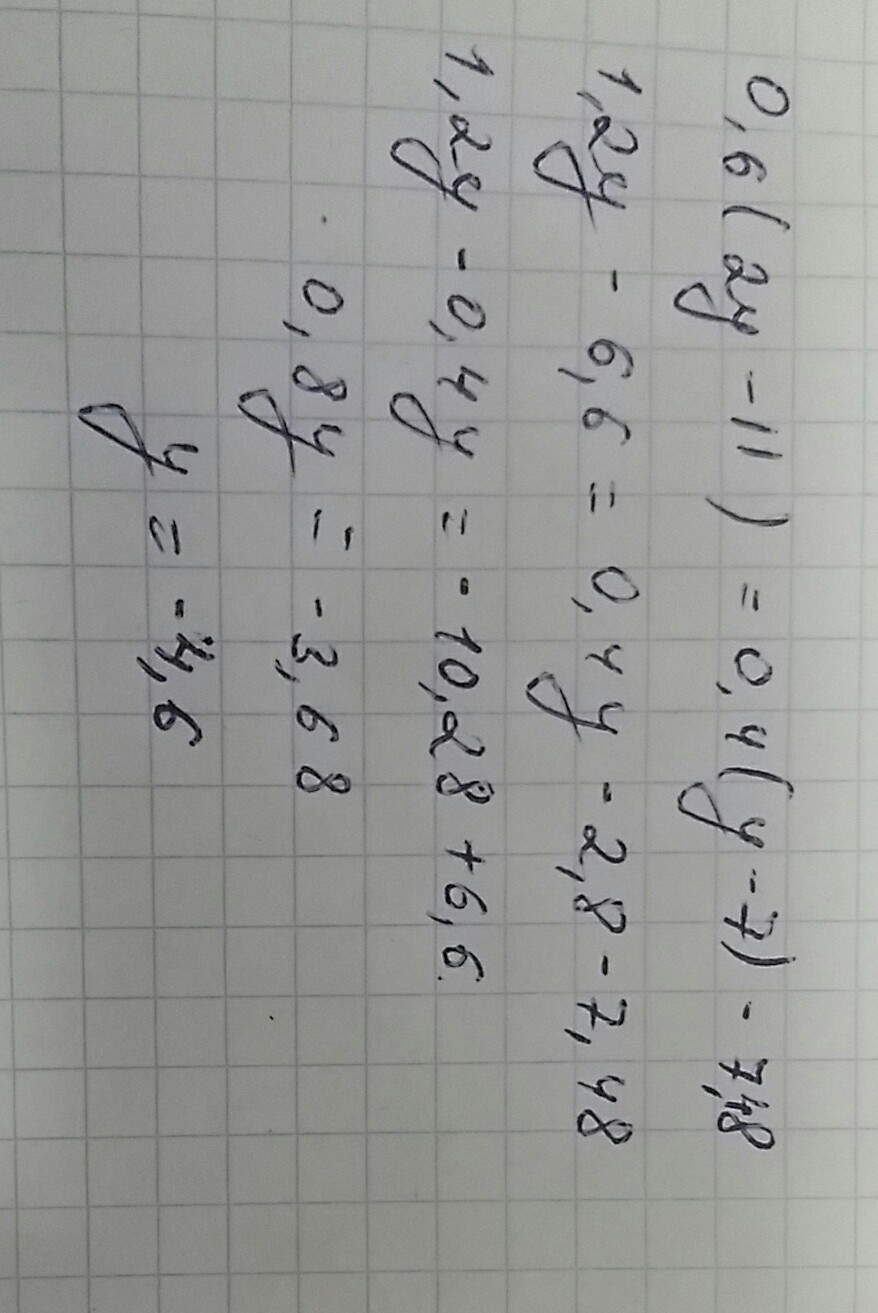 0,6(2y-11)=0,4(y-7)-7,48
1,2y-6,6=0,4y-2,8-7,48
1,2y-0,4y=-10,28+6,6
0,8y=-3,68
y=-4,6